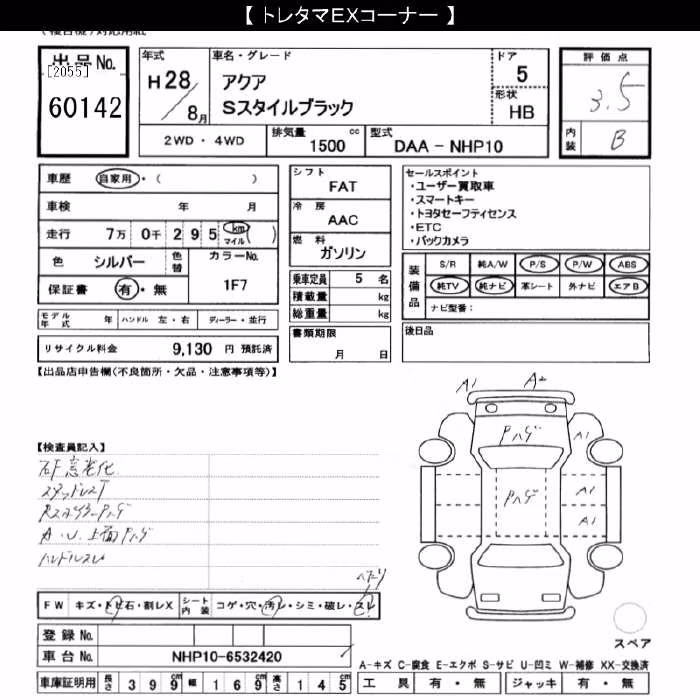 【 トレタマEXコーナー 】
出品No.
[2055]
60142
年式
H28/8月
車名・グレード
アクア
Sスタイルブラック
ドア
5
形状
HB
評価点
3.5
内装
B
2WD・4WD
排気量
1500 cc
型式
DAA-NHP10
車歴 自家用・( )
車検 年 月
走行 7万 0千 2 9 5 km マイル( )
色 シルバー 色替 カラーNo.
1F7
保証書 有・無
シフト
FAT
冷房
AAC
燃料
ガソリン
乗車定員 5 名
積載量 kg
総重量 kg
書類期限
月 日
セールスポイント
・ユーザー買取車
・スマートキー
・トヨタセーフティセンス
・ETC
・バックカメラ
装備品
S/R 純A/W P/S P/W ABS
純TV 純ナビ 革シート 外ナビ エアB
ナビ型番:
後日品
モデル年式 年 ハンドル 左・右 ディーラー・並行
リサイクル料金 9,130 円 預託済
【出品店申告欄(不良箇所・欠品・注意事項等)】
A1 A2
Pハゲ
A1
Pハゲ
A1
A1
【検査員記入】
A・U、上面Pハゲ
ハンドルスレ
FW キズ・トビ石・割レX シート内装 コゲ・穴・汚レ・シミ・破レ・スレ
登録No.
車台No. NHP10-6532420
スペア
A-キズ C-腐食 E-エクボ S-サビ U-凹ミ W-補修 XX-交換済
車庫証明用 長さ 399cm 幅 169cm 高さ 145cm 工具 有・無 ジャッキ 有・無